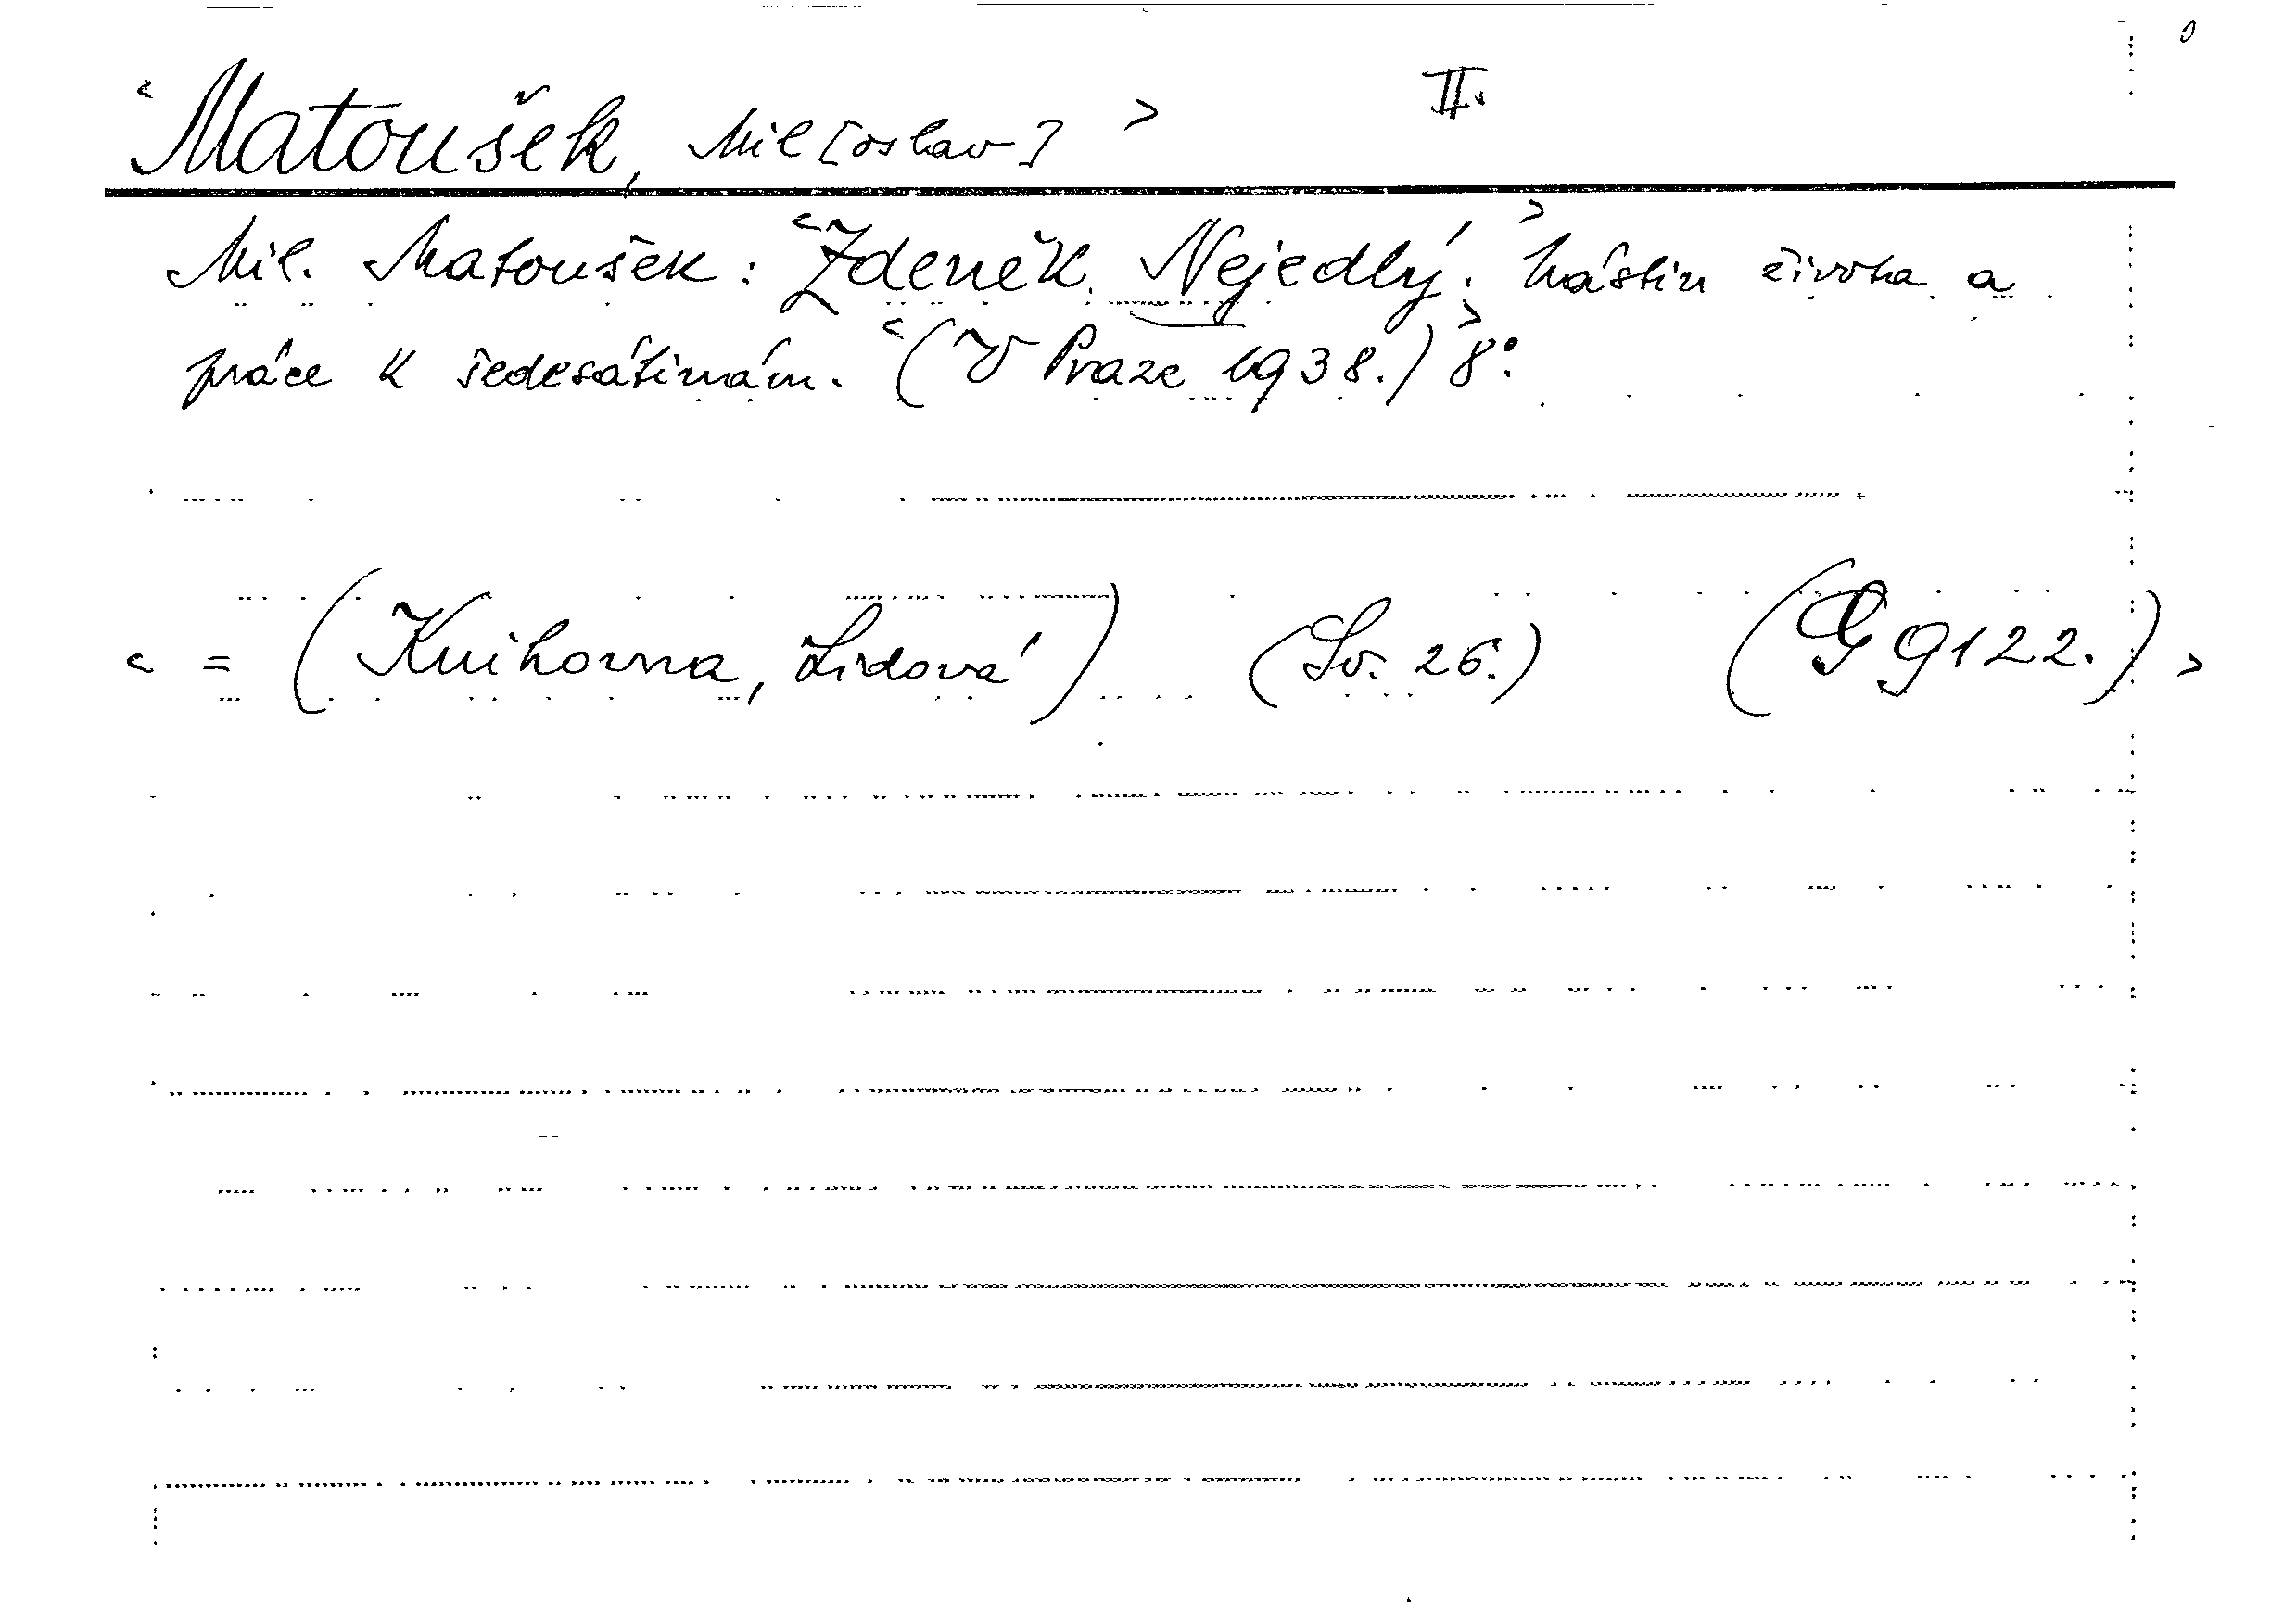 <Matoušek, Mil[oslav]> II.
Mil. Matoušek: <Zdeněk Nejedlý.> Nástin života a
práce k šedesátinám. <(V Praze 1938.)> 8°.
< = (Knihovna, Lidová) (Sv. 26.) (G 9122.) >